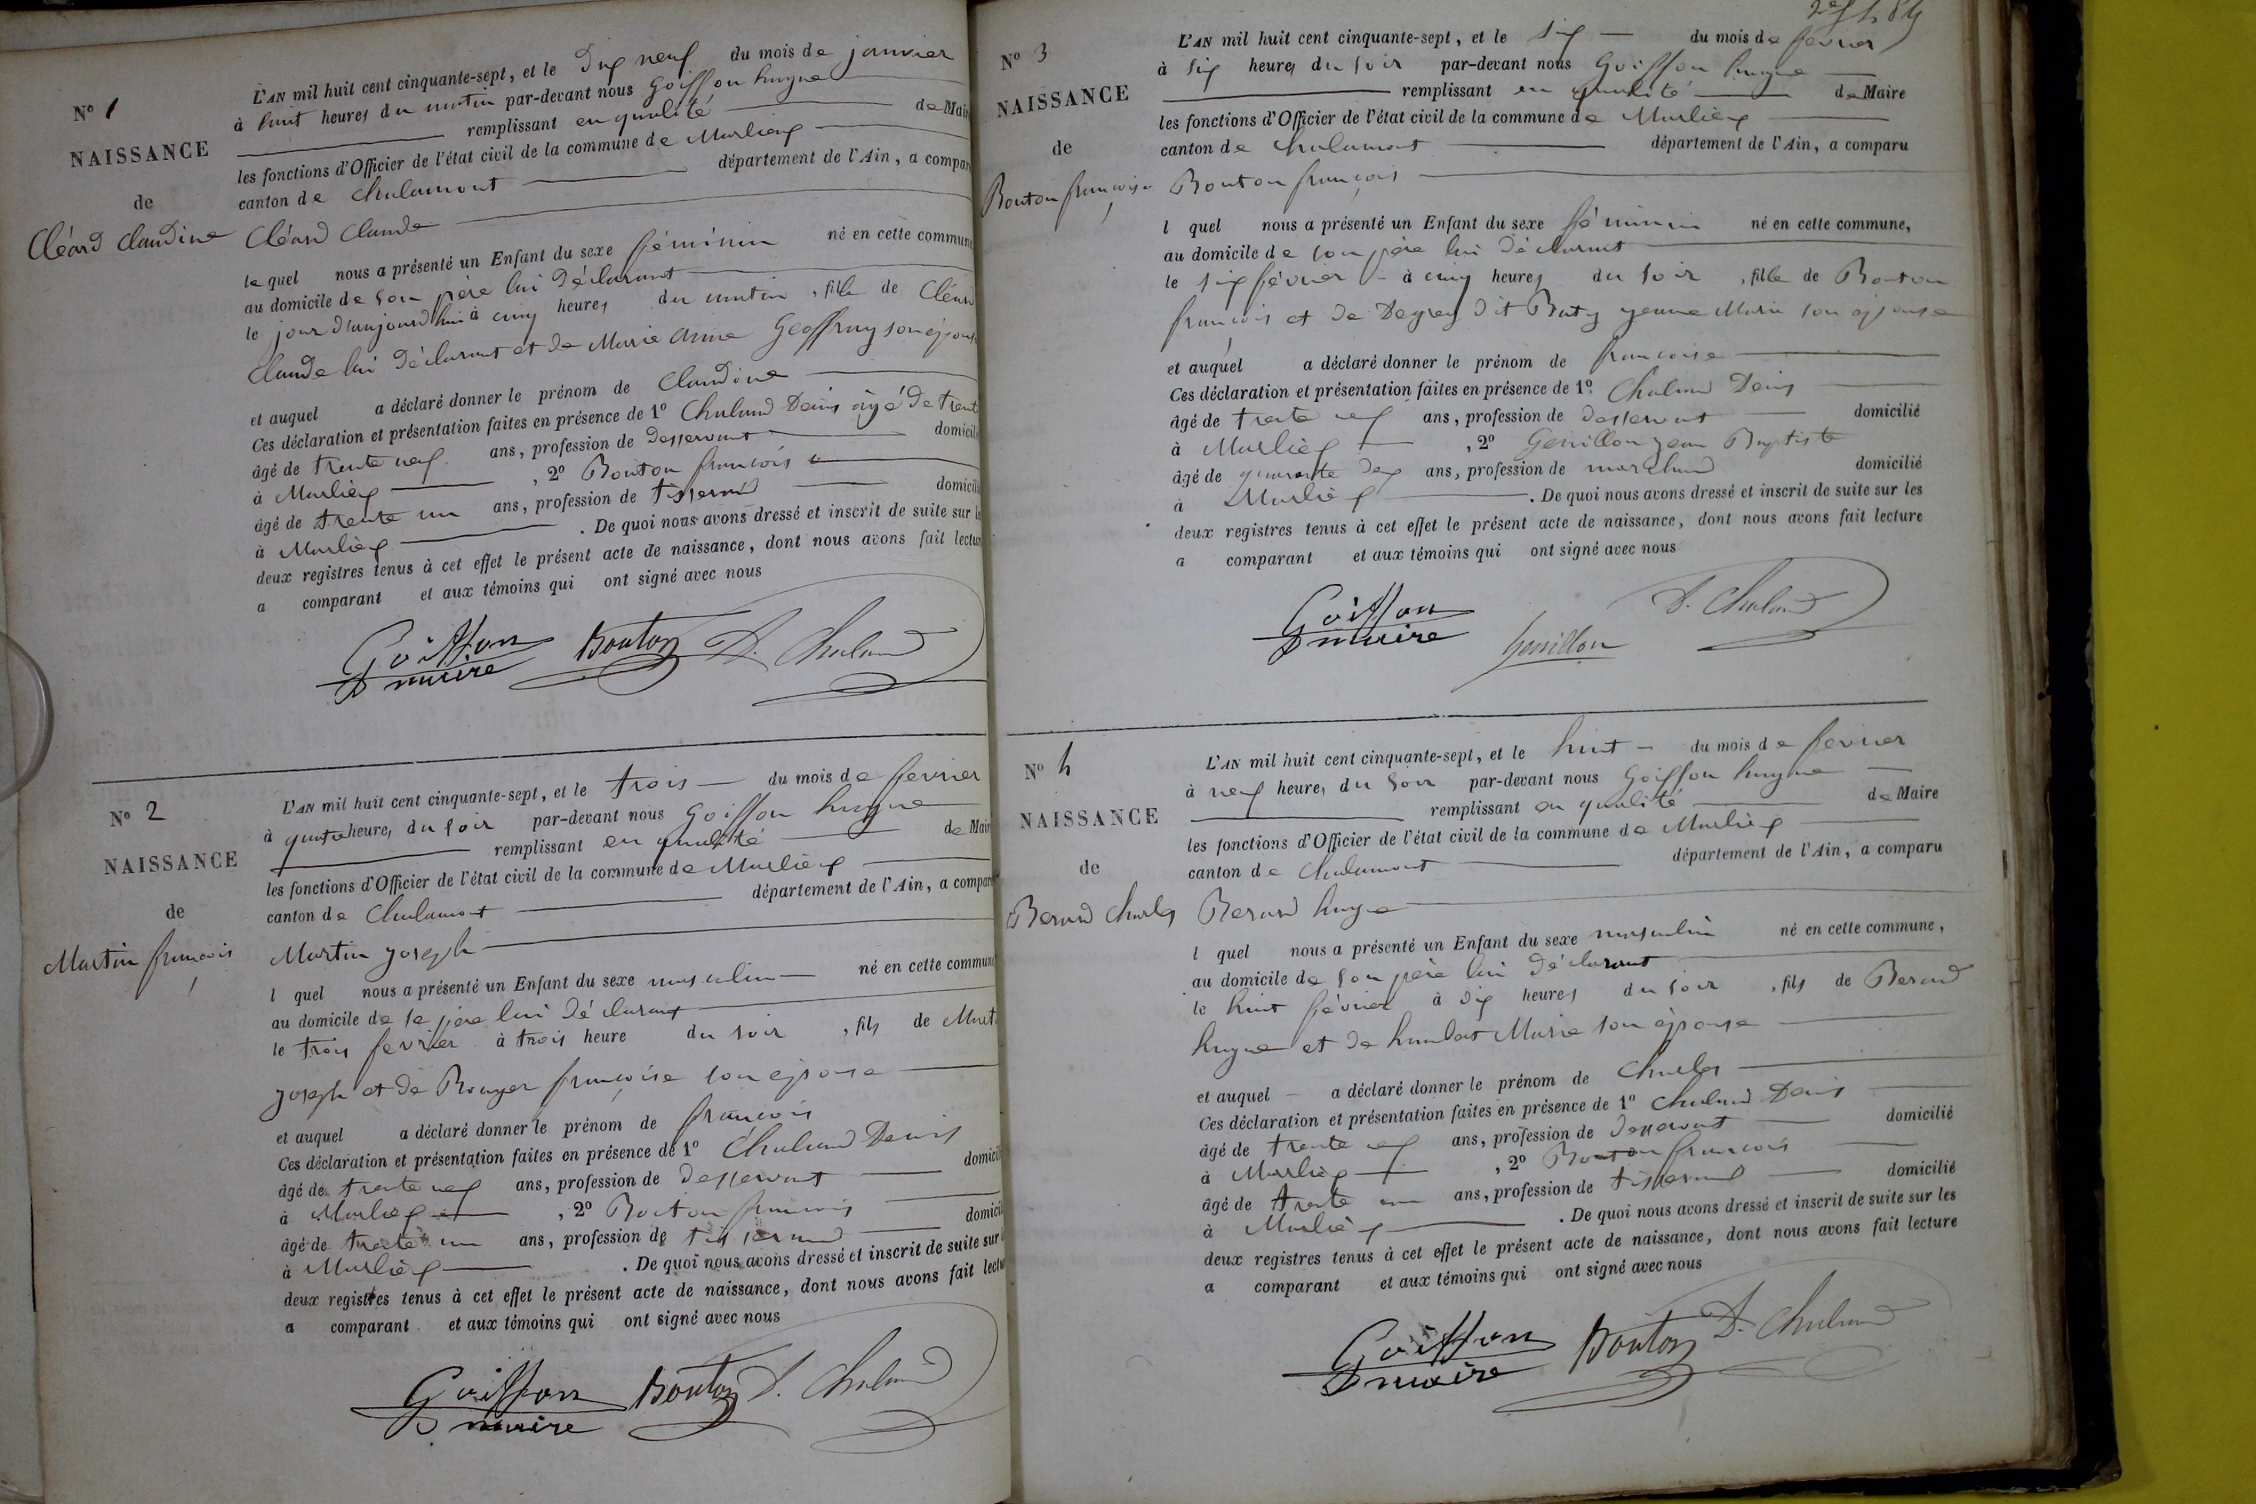 N° 1
NAISSANCE
de
Cléard Claudine
L'AN mil huit cent cinquante-sept, et le dix neuf du mois de janvier
à huit heures du matin par-devant nous Goiffon hugue
remplissant en qualité de Mair
les fonctions d'Officier de l'état civil de la commune de Marlieux
canton de Chalamont département de l'Ain, a compar
Cléard Claude
le quel nous a présenté un Enfant du sexe féminin né en cette commune
au domicile de son père lui déclarant
le jour d'aujourd'hui à cinq heures du matin, fille de Cléard
Claude lui déclarant et de Marie Anne Geoffray son épouse
et auquel a déclaré donner le prénom de Claudine
Ces déclaration et présentation faites en présence de 1° Chaland Denis âgé de trente
âgé de trente neuf ans, profession de desservant domicili
à Marlieux, 2° Bouton françois
âgé de trente un ans, profession de tisserand domicili
à Marlieux. De quoi nous avons dressé et inscrit de suite sur les
deux registres tenus à cet effet le présent acte de naissance, dont nous avons fait lectur
a comparant et aux témoins qui ont signé avec nous
Goiffon Bouton D. Chaland
maire
N° 2
NAISSANCE
de
Martin françois
L'AN mil huit cent cinquante-sept, et le trois du mois de fevrier
à quatre heures du soir par-devant nous Goiffon hugue
remplissant en qualité de Mair
les fonctions d'Officier de l'état civil de la commune de Marlieux
canton de Chalamont département de l'Ain, a compar
Martin joseph
l quel nous a présenté un Enfant du sexe masculin né en cette commune
au domicile de le père lui déclarant
le trois fevrier à trois heure du soir, fils de Mart
joseph et de Rouyer françoise son épouse
et auquel a déclaré donner le prénom de françois
Ces déclaration et présentation faites en présence de 1° Chaland Denis
âgé de trente neuf ans, profession de desservant domicili
à Marlieux, 2° Bouton françois
âgé de trente un ans, profession de tisserand domicili
à Marlieux. De quoi nous avons dressé et inscrit de suite sur
deux registres tenus à cet effet le présent acte de naissance, dont nous avons fait lectu
a comparant et aux témoins qui ont signé avec nous
Goiffon Bouton D. Chaland
maire
N° 3
NAISSANCE
de
Bouton françoise
L'AN mil huit cent cinquante-sept, et le six du mois de fevrier
à six heures du soir par-devant nous Goiffon hugue
remplissant en qualité de Maire
les fonctions d'Officier de l'état civil de la commune de Marlieux
canton de Chalamont département de l'Ain, a comparu
Bouton françois
l quel nous a présenté un Enfant du sexe féminin né en cette commune,
au domicile de son père lui déclarant
le six février à cinq heures du soir, fille de Bouton
françois et de Degrey dit Buty jeanne Marie son épouse
et auquel a déclaré donner le prénom de françoise
Ces déclaration et présentation faites en présence de 1° Chaland Denis
âgé de trente neuf ans, profession de desservant domicilié
à Marlieux, 2° Genillon jean Baptiste
âgé de quarante deux ans, profession de marchand domicilié
à Marlieux. De quoi nous avons dressé et inscrit de suite sur les
deux registres tenus à cet effet le présent acte de naissance, dont nous avons fait lecture
a comparant et aux témoins qui ont signé avec nous
Goiffon D. Chaland
maire Genillon
N° 4
NAISSANCE
de
Berard Charles
L'AN mil huit cent cinquante-sept, et le huit du mois de fevrier
à neuf heures du soir par-devant nous Goiffon hugue
remplissant en qualité de Maire
les fonctions d'Officier de l'état civil de la commune de Marlieux
canton de Chalamont département de l'Ain, a comparu
Berard hugue
l quel nous a présenté un Enfant du sexe masculin né en cette commune,
au domicile de son père lui déclarant
le huit février à dix heures du soir, fils de Berard
hugue et de humbert Marie son épouse
et auquel a déclaré donner le prénom de Charles
Ces déclaration et présentation faites en présence de 1° Chaland Denis
âgé de trente neuf ans, profession de desservant domicilié
à Marlieux, 2° Bouton françois
âgé de trente un ans, profession de tisserand domicilié
à Marlieux. De quoi nous avons dressé et inscrit de suite sur les
deux registres tenus à cet effet le présent acte de naissance, dont nous avons fait lecture
a comparant et aux témoins qui ont signé avec nous
Goiffon Bouton D. Chaland
maire